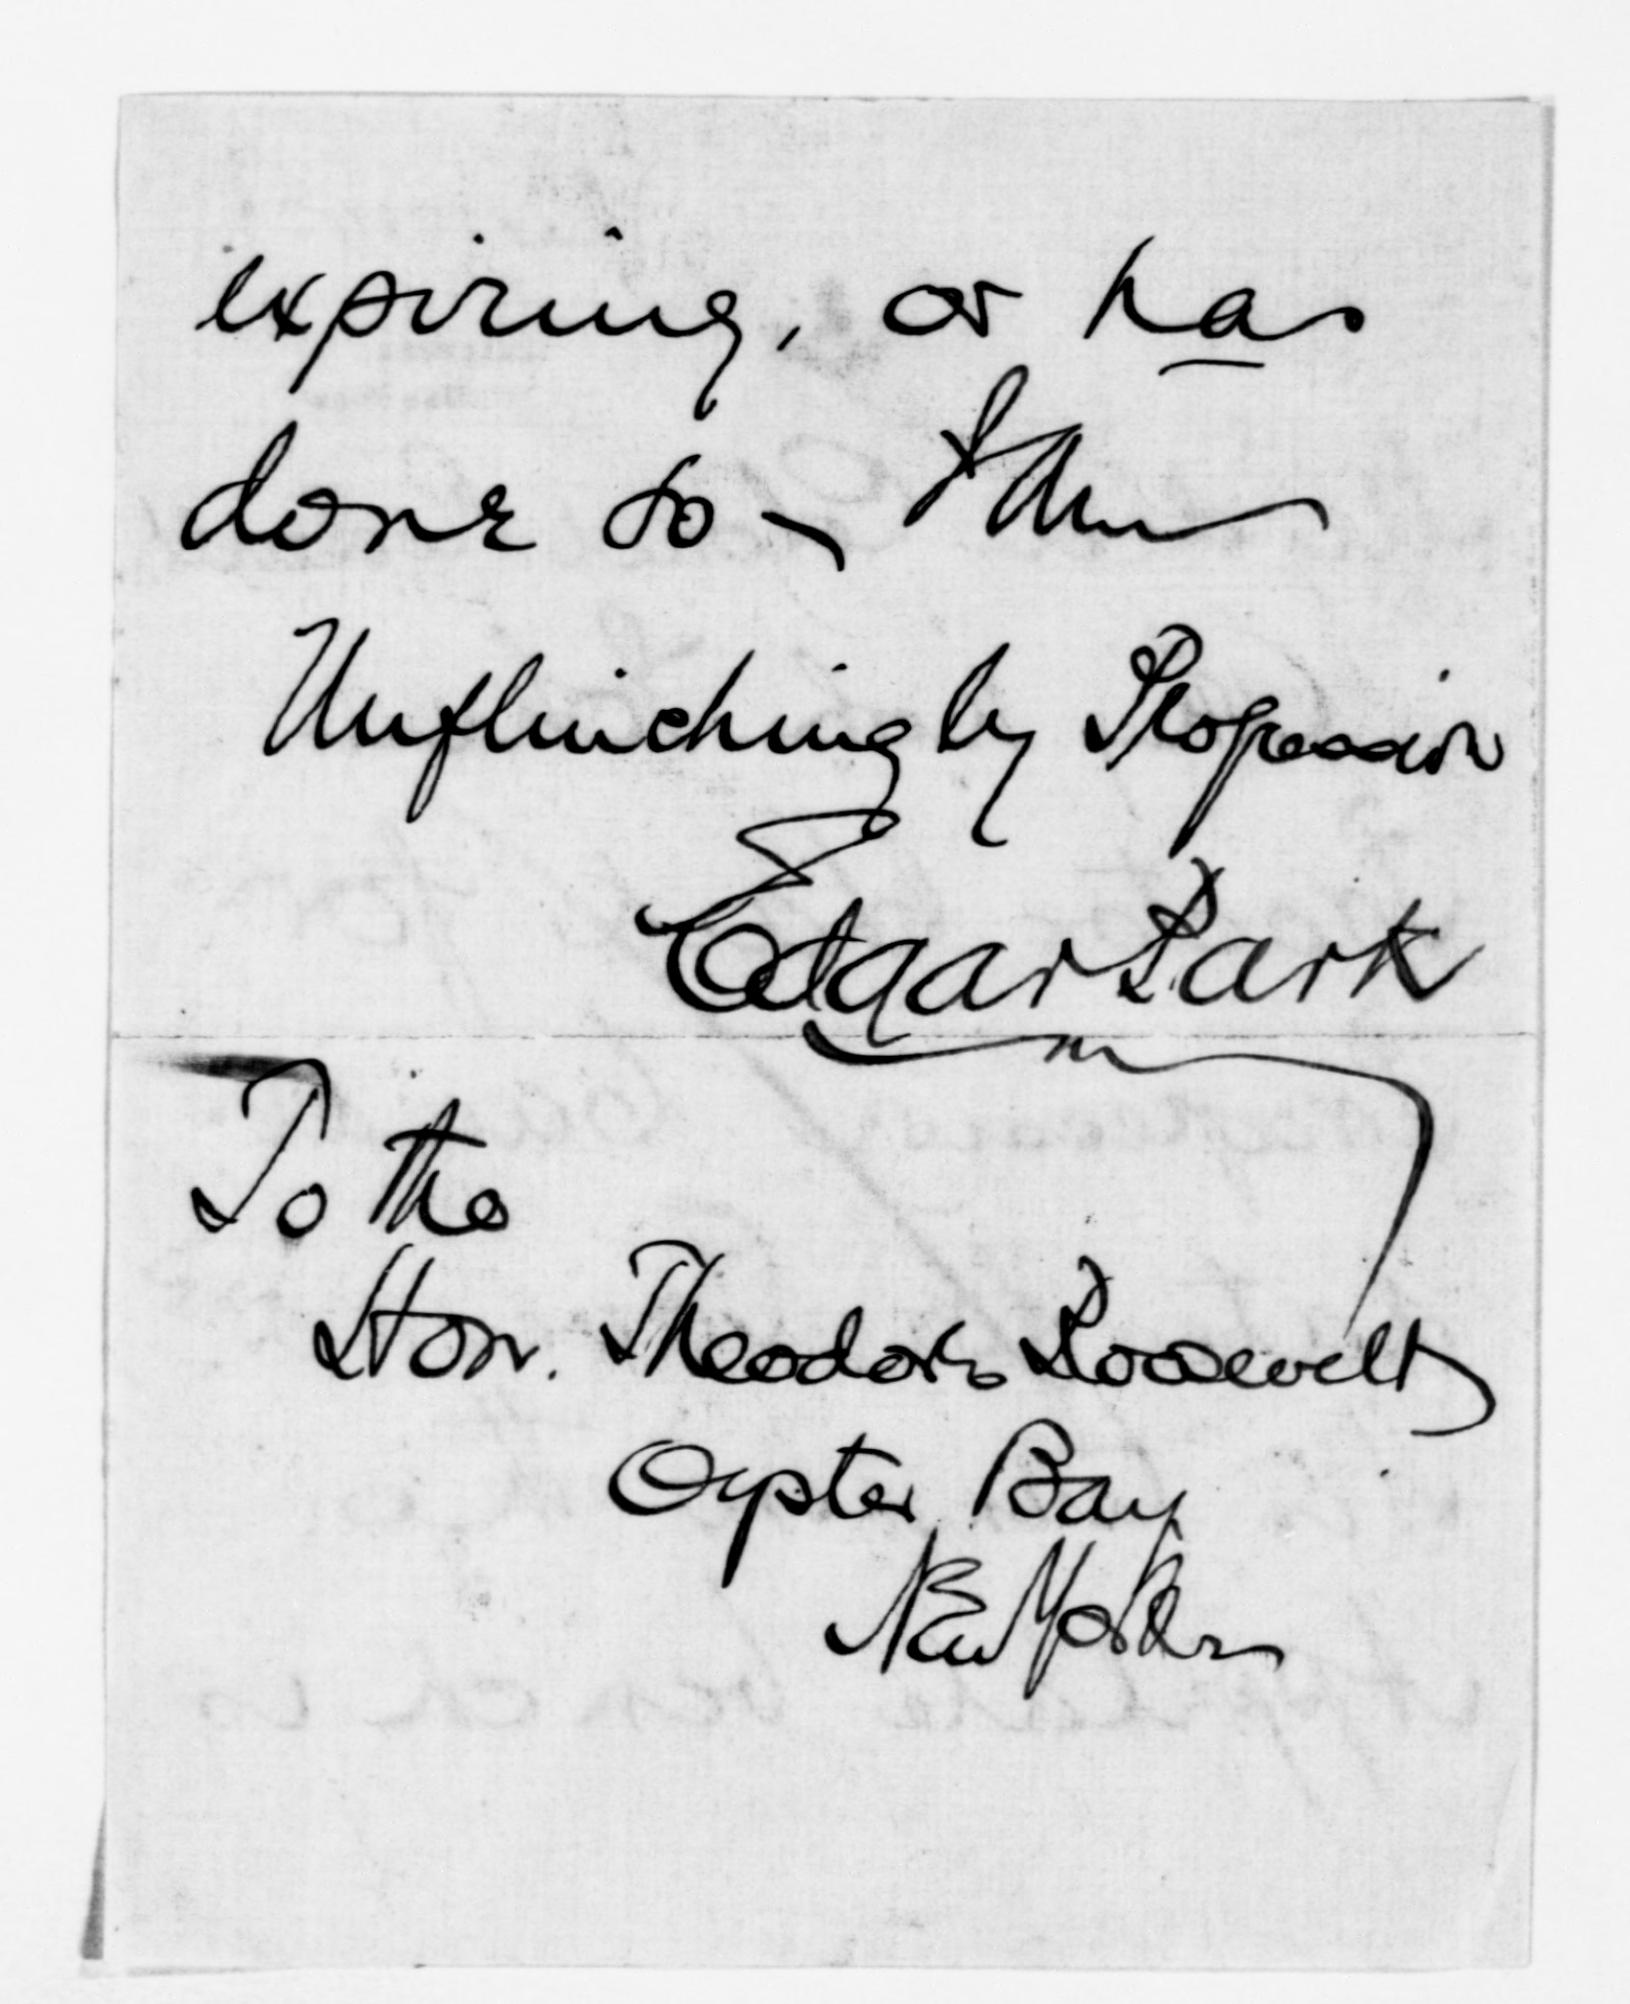 expiring, or has
done so – I am
Unflinchingly Progressive
Edgar Park
To the
Hon. Theodore Roosevelt
Oyster Bay
New York